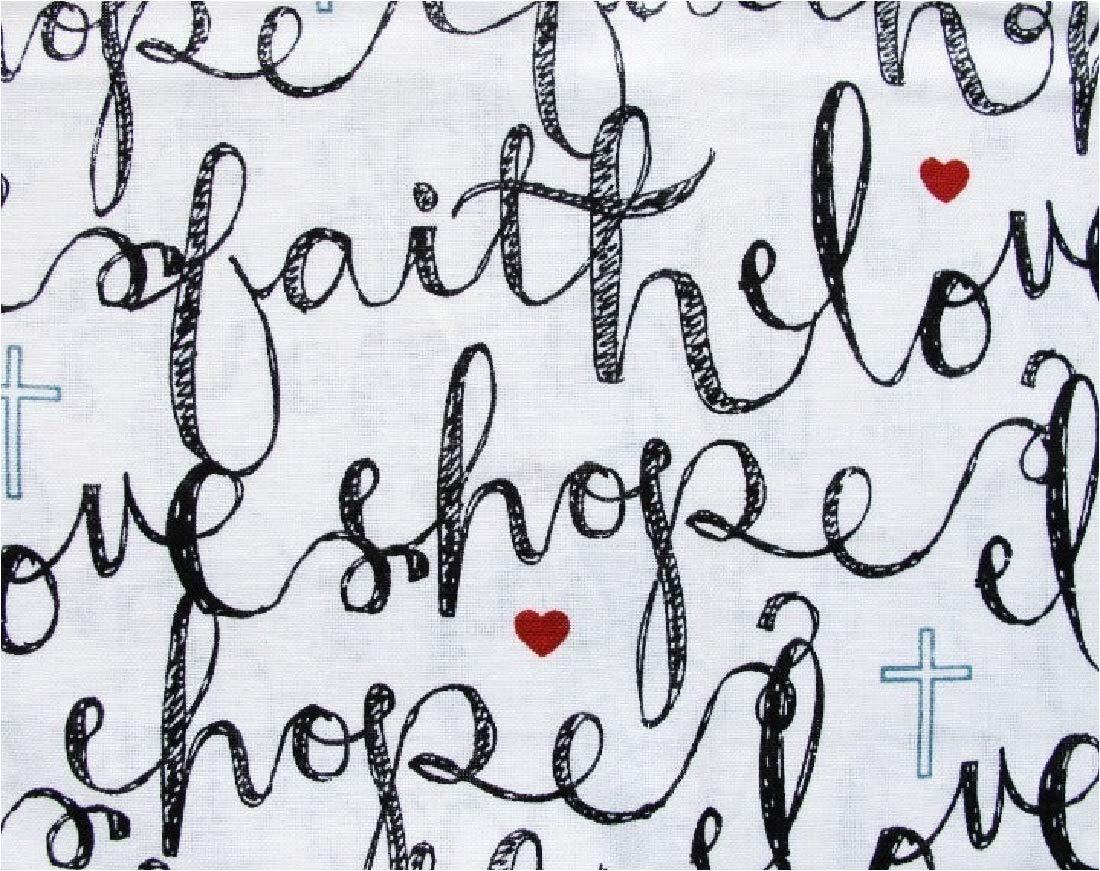 ope
faith love
ove hope
hope
ove